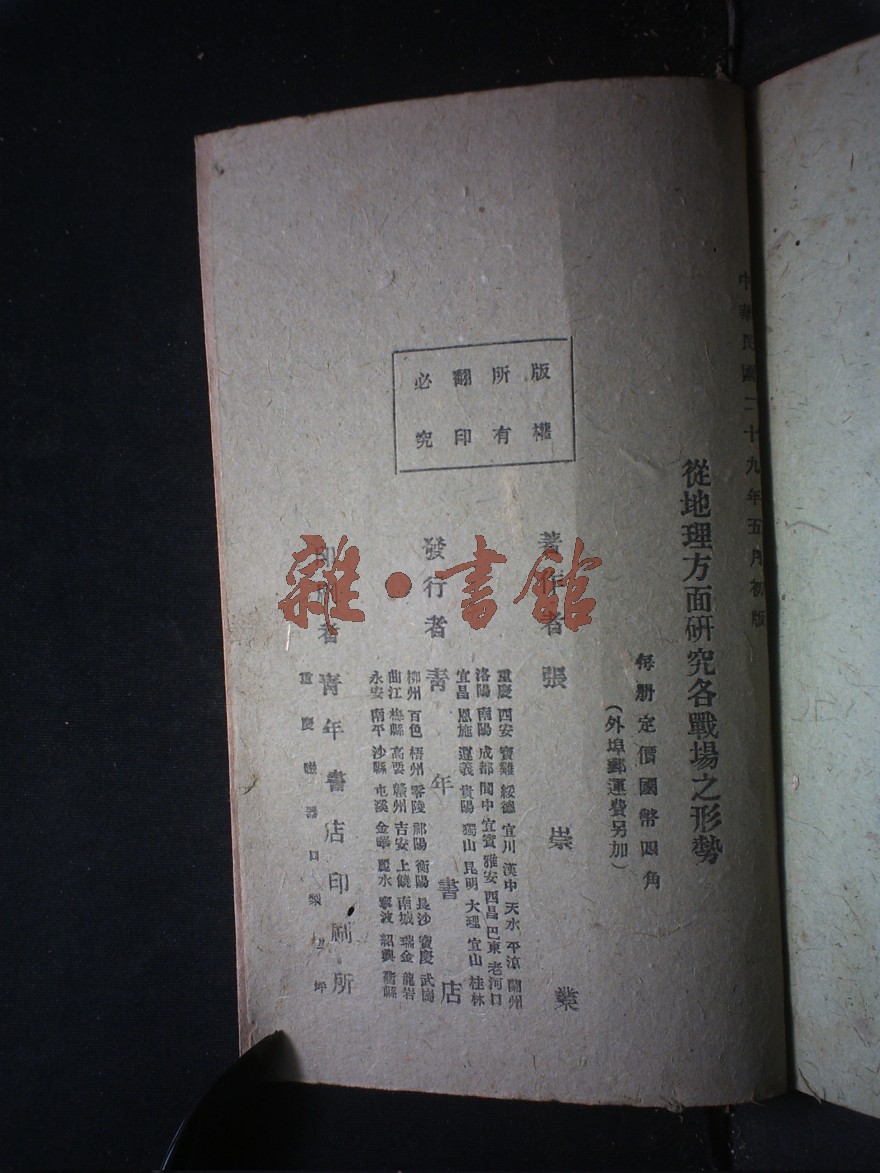 中華民國二十九年五月初版
從地理方面研究各戰場之形勢
每册定價國幣四角
(外埠郵運費另加)
版權
所有
翻印
必究
著作者 張崇業
發行者 青年書店
重慶 西安 寶雞 綏德 宜川 漢中 天水 平涼 蘭州
洛陽 南陽 成都 閬中 宜賓 雅安 西昌 巴東 老河口
宜昌 恩施 遵義 貴陽 獨山 昆明 大理 宜山 桂林
柳州 百色 梧州 零陵 祁陽 衡陽 長沙 寶慶 武岡
曲江 梅縣 高要 贛州 吉安 上饒 南城 瑞金 龍岩
永安 南平 沙縣 屯溪 金華 麗水 寧波 紹興
印刷者 青年書店印刷所
重慶磁器口
雜·書館